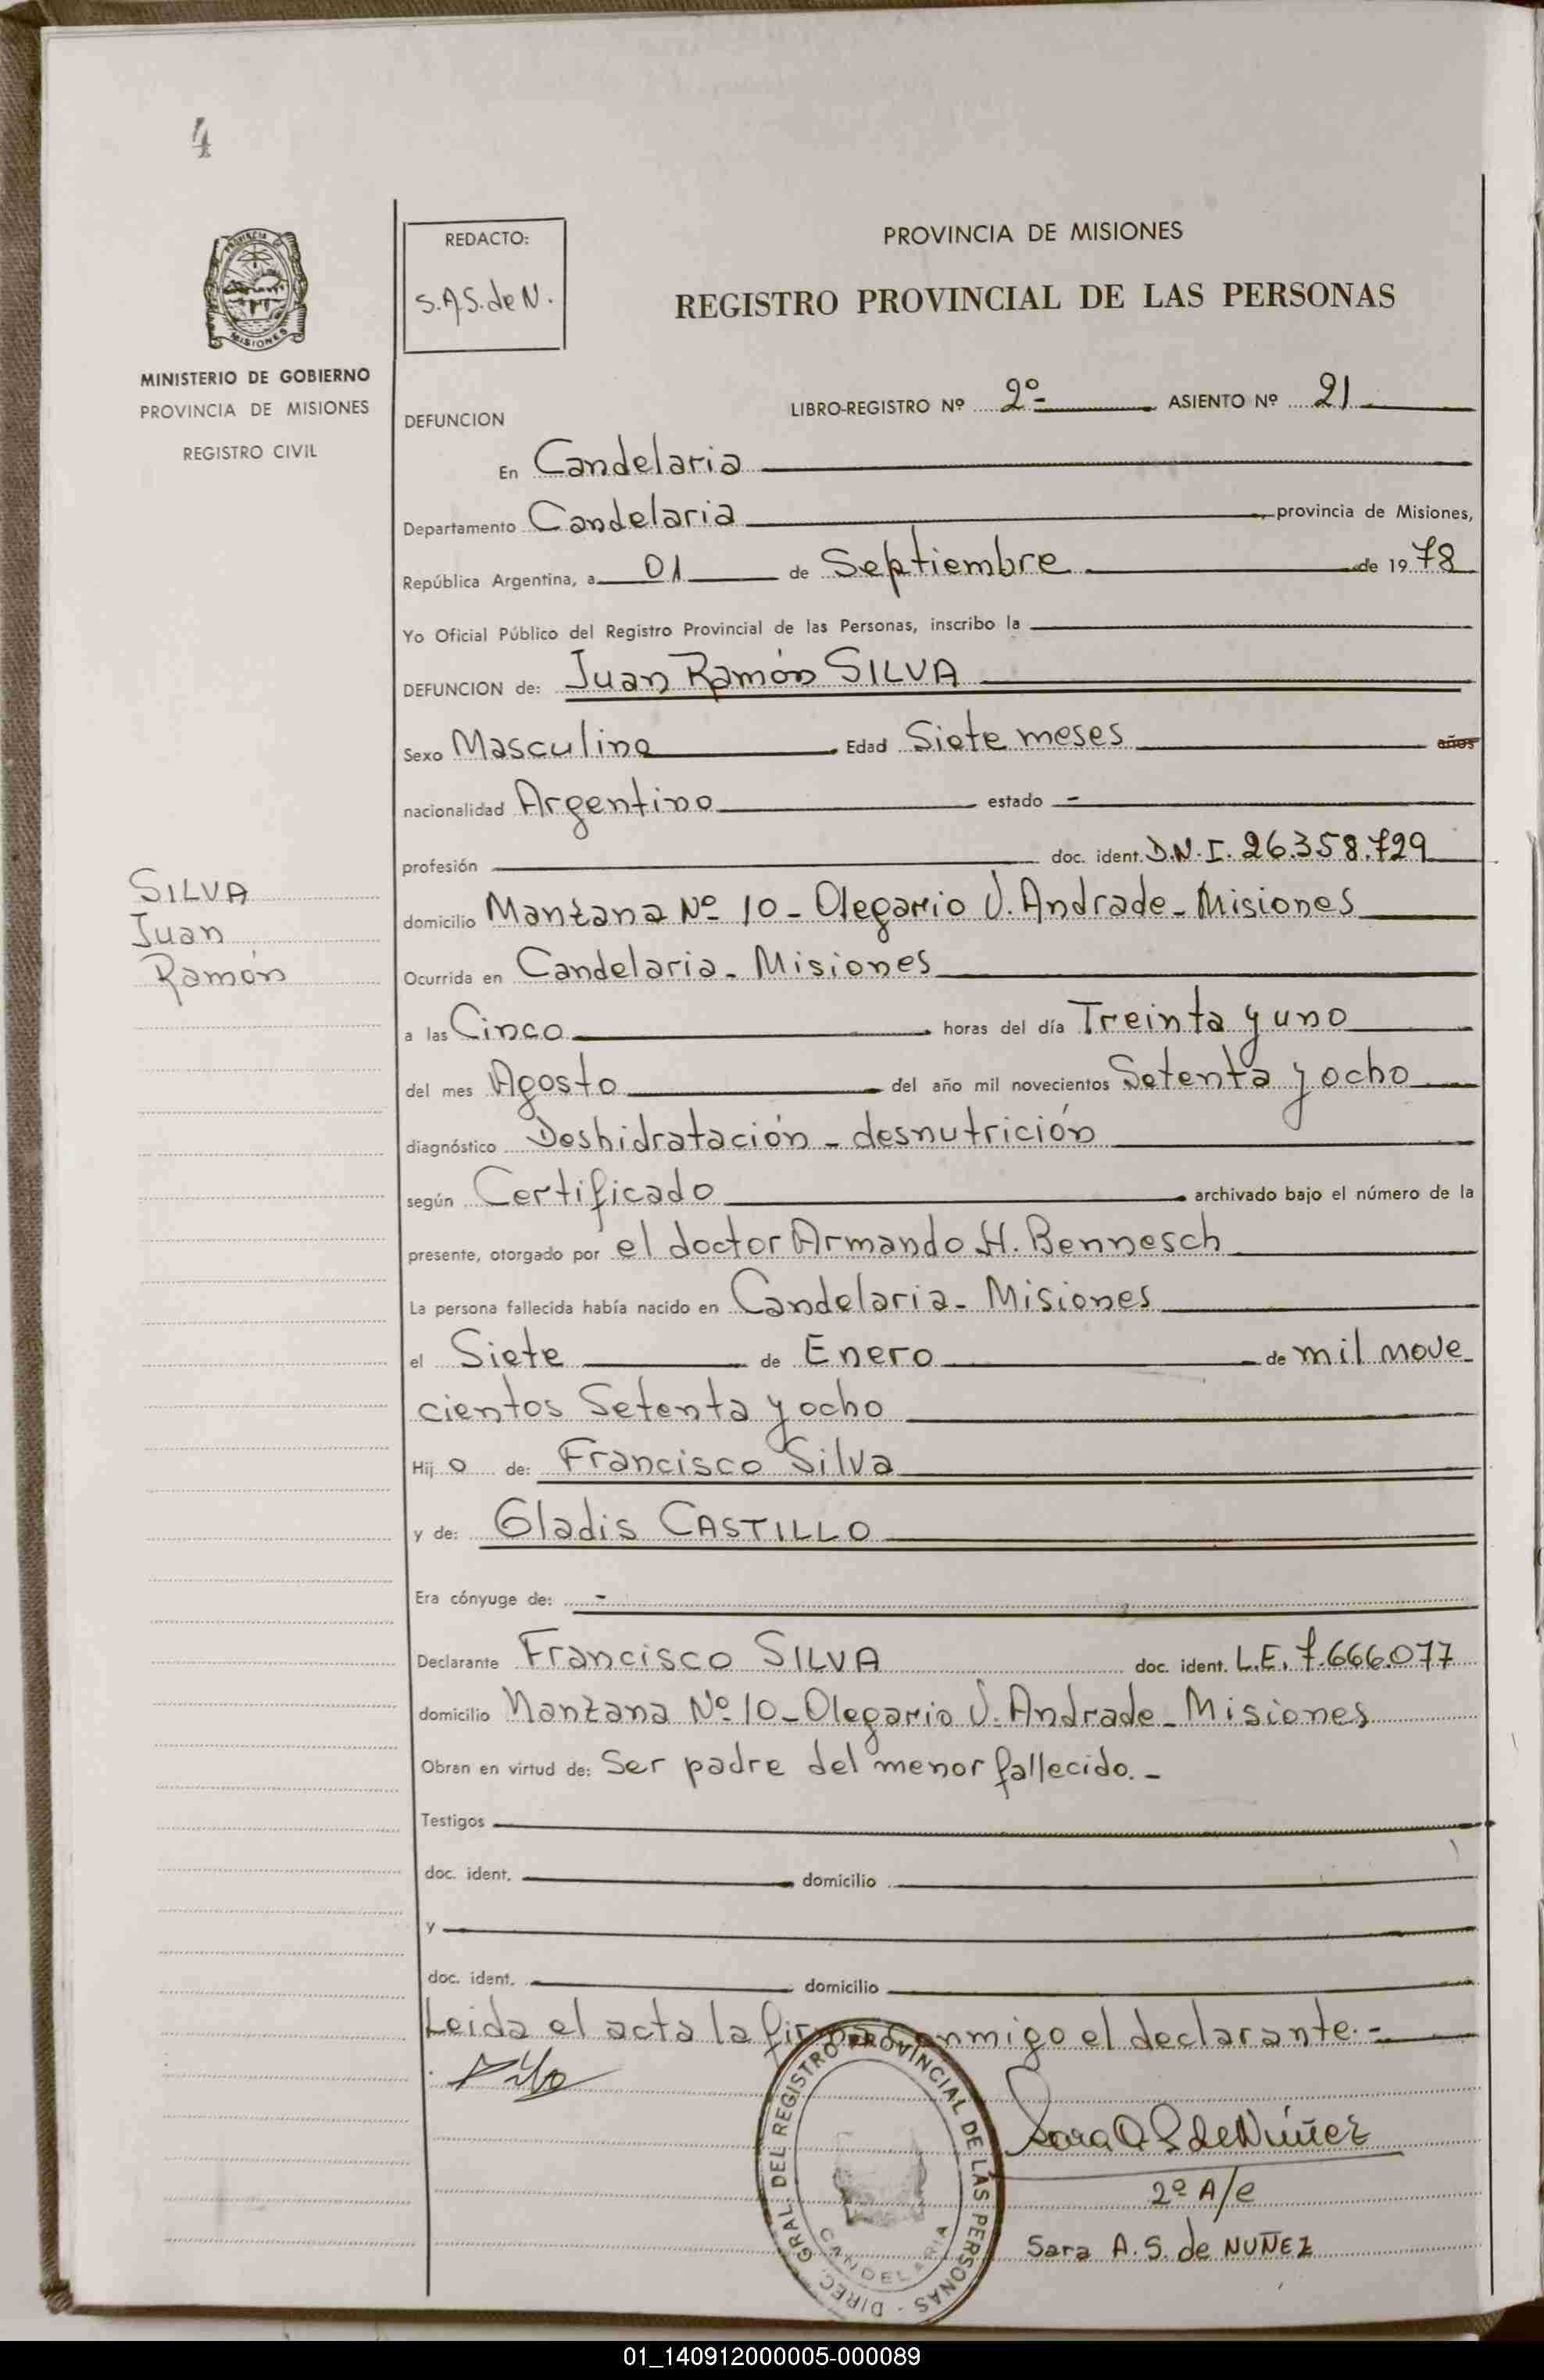 4
PROVINCIA DE MISIONES
MINISTERIO DE GOBIERNO
PROVINCIA DE MISIONES
REGISTRO CIVIL
SILVA
Juan
Ramón
REDACTO:
S.A.S. de N.
PROVINCIA DE MISIONES
REGISTRO PROVINCIAL DE LAS PERSONAS
LIBRO-REGISTRO Nº 2º- ASIENTO Nº 21
DEFUNCION
En Candelaria
Departamento Candelaria, provincia de Misiones,
República Argentina, a 01 de Septiembre de 1978
Yo Oficial Público del Registro Provincial de las Personas, inscribo la
DEFUNCION de: Juan Ramón SILVA
Sexo Masculino Edad Siete meses años
nacionalidad Argentino estado -
profesión doc. ident. D.N.I. 26.358.729
domicilio Manzana Nº 10 - Olegario V. Andrade - Misiones
Ocurrida en Candelaria - Misiones
a las Cinco horas del día Treinta y uno
del mes Agosto del año mil novecientos Setenta y ocho
diagnóstico Deshidratación - desnutrición
según Certificado archivado bajo el número de la
presente, otorgado por el doctor Armando H. Bennesch
La persona fallecida había nacido en Candelaria - Misiones
el Siete de Enero de mil nove
cientos Setenta y ocho
Hijo de: Francisco Silva
y de: Gladis CASTILLO
Era cónyuge de: -
Declarante Francisco SILVA doc. ident. L.E. 7.666.077
domicilio Manzana Nº 10 - Olegario V. Andrade - Misiones
Obran en virtud de: Ser padre del menor fallecido. -
Testigos
doc. ident. domicilio
y
doc. ident. domicilio
Leida el acta la firma conmigo el declarante. -
DIREC. GRAL. DEL REGISTRO PROVINCIAL DE LAS PERSONAS -
CANDELARIA
Sara A S de Núñez
2º A/e
Sara A. S. de NUÑEZ
01_140912000005-000089